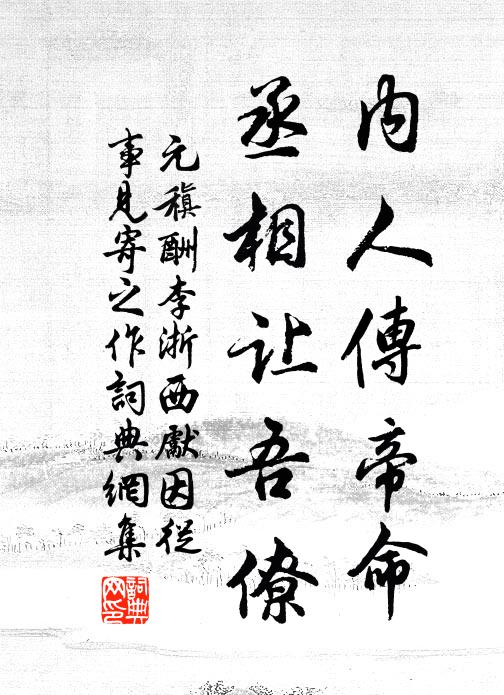 内人傳帝命
丞相让吾僚
元稹酬李浙西獻因從
事見寄之作詞典網集
詞典網印